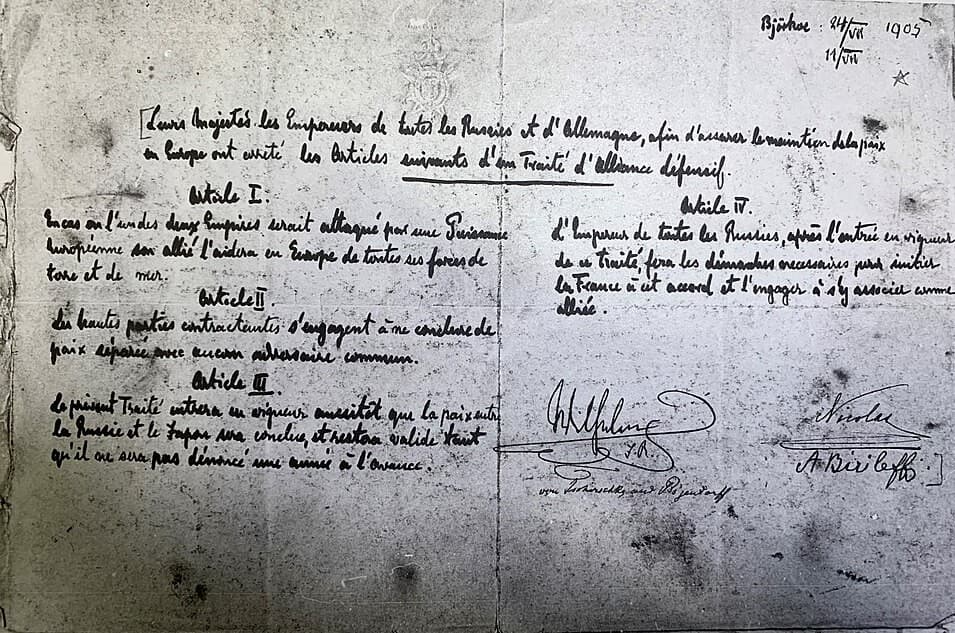 Björkoe : 24/VII 1905
11/VII
[Leurs Majestés les Empereurs de toutes les Russies et d'Allemagne, afin d'assurer le maintien de la paix
en Europe ont arrêté les Articles suivants d'un Traité d'Alliance défensif.
Article I.
En cas ou l'un des deux Empires serait attaqué par une Puissance
Européenne son allié l'aidera en Europe de toutes ses forces de
terre et de mer.
Article II.
Les hautes parties contractantes s'engagent à ne conclure de
paix séparée avec aucun adversaire commun.
Article III
Le présent Traité entrera en vigueur aussitôt que la paix entre
la Russie et le Japon sera conclue, et restera valide tant
qu'il ne sera pas dénoncé une année à l'avance.
Article IV.
L'Empereur de toutes les Russies, après l'entrée en vigueur
de ce Traité, fera les démarches necessaires pour initier
la France à cet accord et l'engager à s'y associer comme
alliée.
Wilhelm
I.R.
von Tschirschky und Bögendorff
Nicolas
A Birileff.]